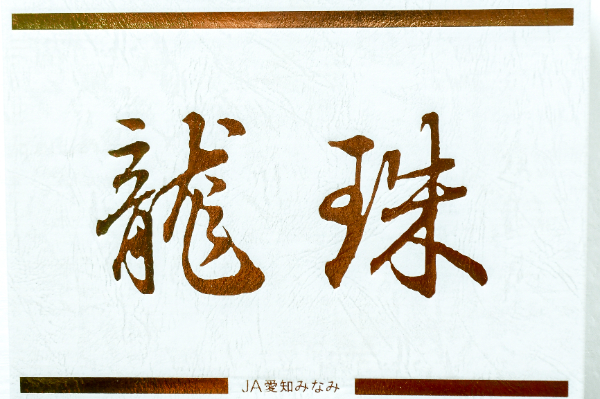 龍珠
JA愛知みなみ